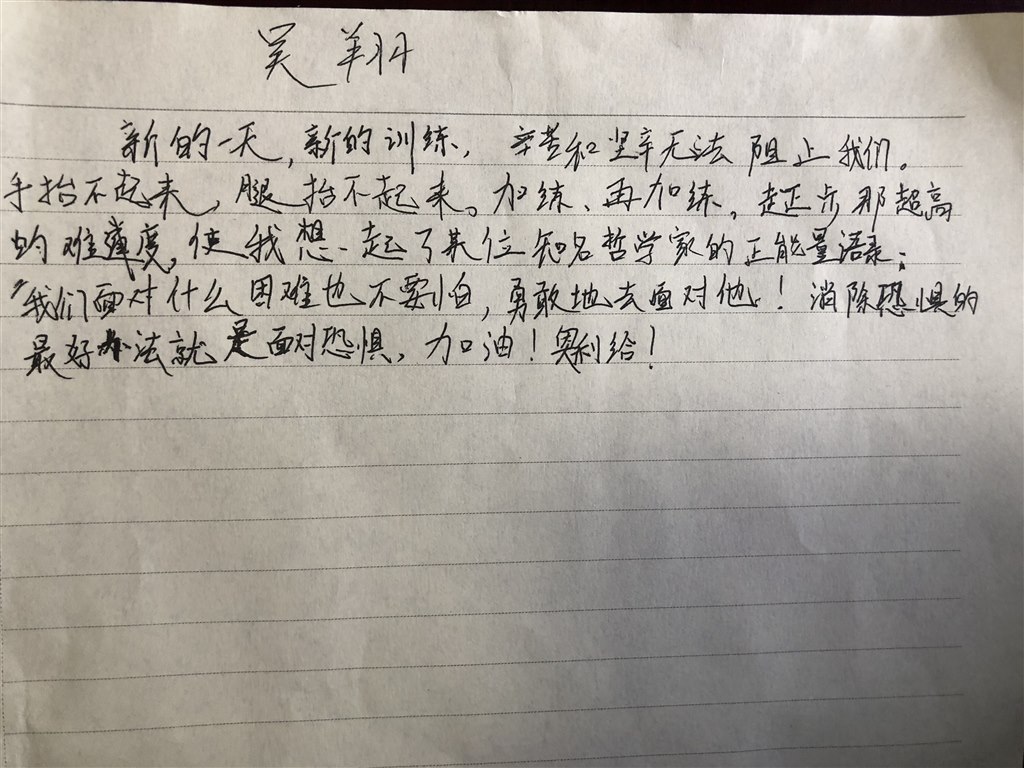 吴翔
新的一天,新的训练,辛苦和坚辛无法阻止我们。
手抬不起来,腿抬不起来。加练、再加练,起正步那超高
的难度,使我想起了某位知名哲学家的正能量语录:
"我们面对什么困难也不要怕,勇敢地去面对他!消除恐惧的
最好办法就是面对恐惧,加油!奥利给!